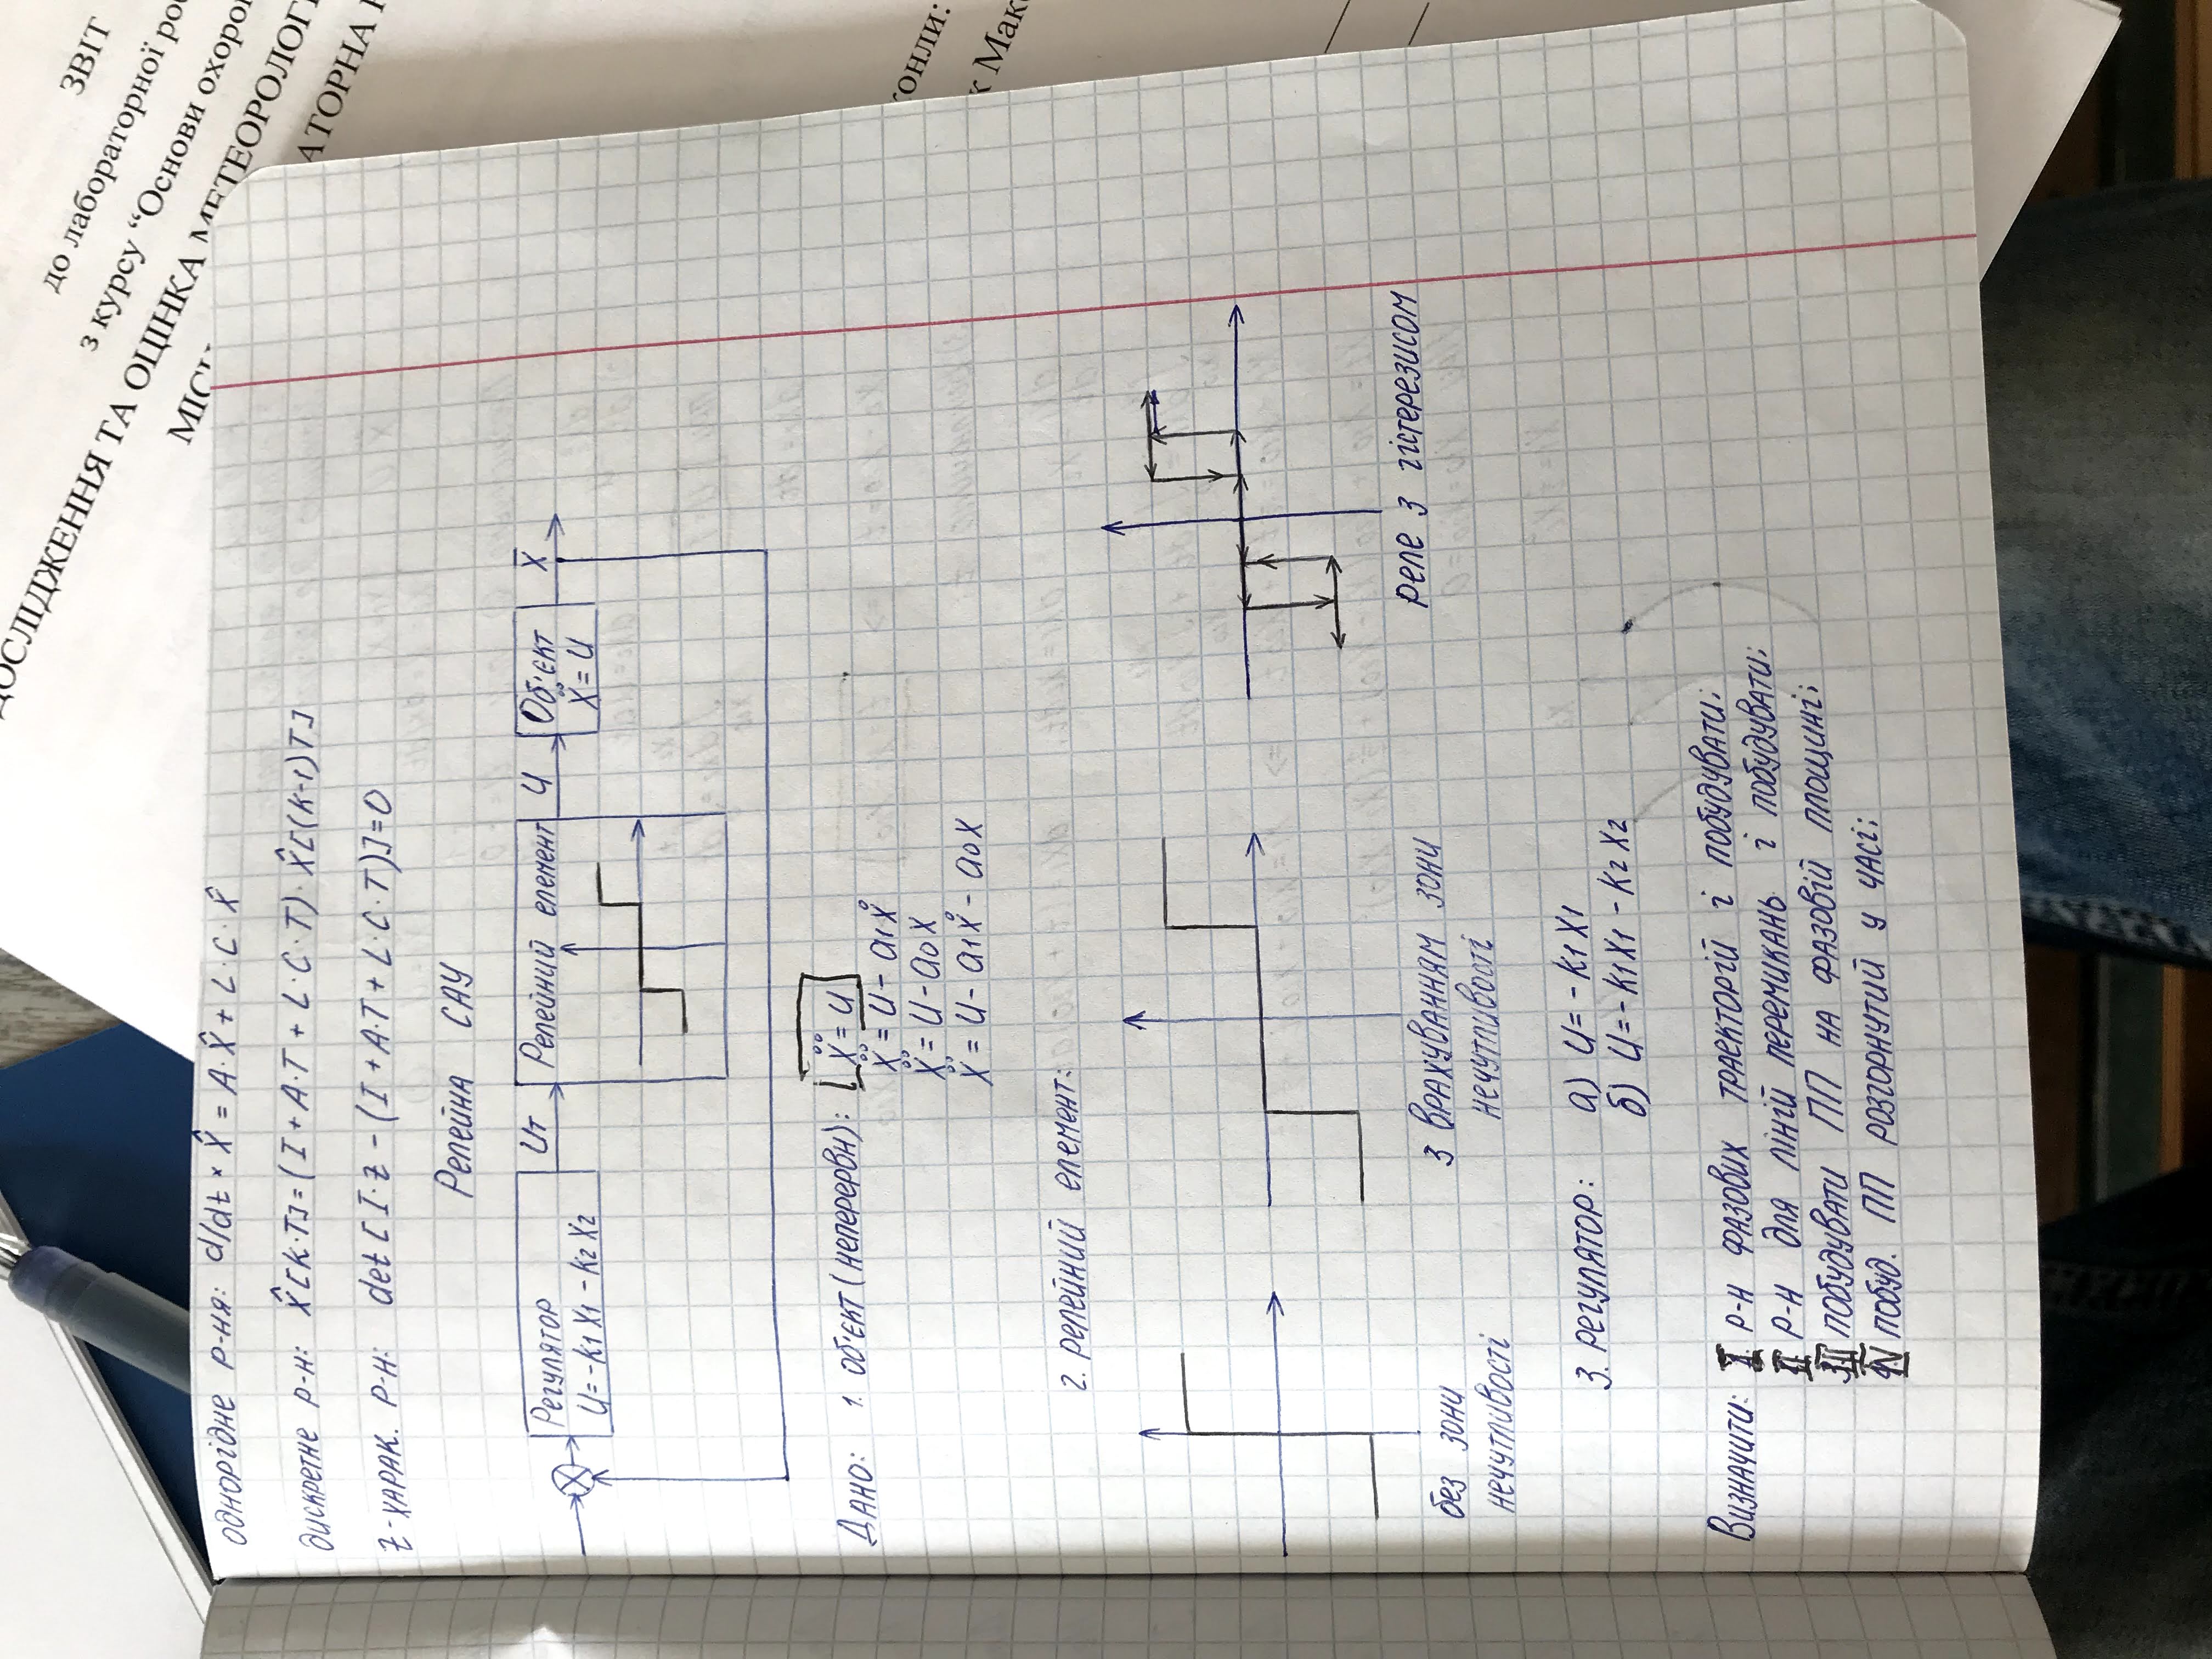 ЗВІТ
до лабораторної
з курсу “Основи
ДОСЛІДЖЕННЯ ТА ОЦІНКА
однорідне р-ня: d/dt × X̂ = A·X̂ + L·C·X̂
дискретне р-н: X̂[k·T]=(I+A·T+L·C·T)·X̂[(k-1)T]
z-харак. р-н: det[I·z-(I+A·T+L·C·T)]=0
Релейна САУ
Регулятор
U=-k1X1-k2X2
Uт
Релейний елемент
U
Об'єкт
Ẍ=U
X̄
Дано: 1. об'єкт (неперервн): Ẍ=U
Ẍ=U-a1Ẋ
Ẍ=U-a0X
Ẍ=U-a1Ẋ-a0X
2. релейний елемент:
без зони
нечутливості
з врахуванням зони
нечутливості
реле з гістерезисом
3. регулятор: а) U=-k1X1
б) U=-k1X1-k2X2
Визначити: I р-н фазових траєкторій і побудувати;
II р-н для ліній перемикань і побудувати;
III побудувати ПП на фазовій площині;
IV побуд. ПП розгорнутий у часі;